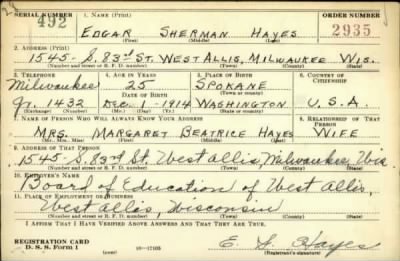 SERIAL NUMBER 1. NAME (Print) ORDER NUMBER
492 EDGAR SHERMAN HAYES 2935
(First) (Middle) (Last)
2. ADDRESS (Print)
1545-S. 83rd ST. WEST ALLIS, MILWAUKEE WIS.
(Number and street or R. F. D. number) (Town) (County) (State)
3. TELEPHONE 4. AGE IN YEARS 5. PLACE OF BIRTH 6. COUNTRY OF CITIZENSHIP
Milwaukee 25 SPOKANE
DATE OF BIRTH (Town or county)
1432 DEC. 1-1914 WASHINGTON U.S.A.
(Mo.) (Day) (Yr.) (State or country)
7. NAME OF PERSON WHO WILL ALWAYS KNOW YOUR ADDRESS 8. RELATIONSHIP OF THAT PERSON
MRS. MARGARET BEATRICE HAYES WIFE
(Mr., Mrs., Miss) (First) (Middle) (Last)
9. ADDRESS OF THAT PERSON
1545-S. 83rd St. West Allis, Milwaukee, Wis
(Number and street or R. F. D. number) (Town) (County) (State)
10. EMPLOYER'S NAME
Board of Education of West Allis,
11. PLACE OF EMPLOYMENT OR BUSINESS
West Allis, Wisconsin
(Number and street or R. F. D. number) (Town) (County) (State)
I AFFIRM THAT I HAVE VERIFIED ABOVE ANSWERS AND THAT THEY ARE TRUE.
REGISTRATION CARD
D. S. S. Form 1 16-17105 E. S. Hayes
(Registrant's signature)